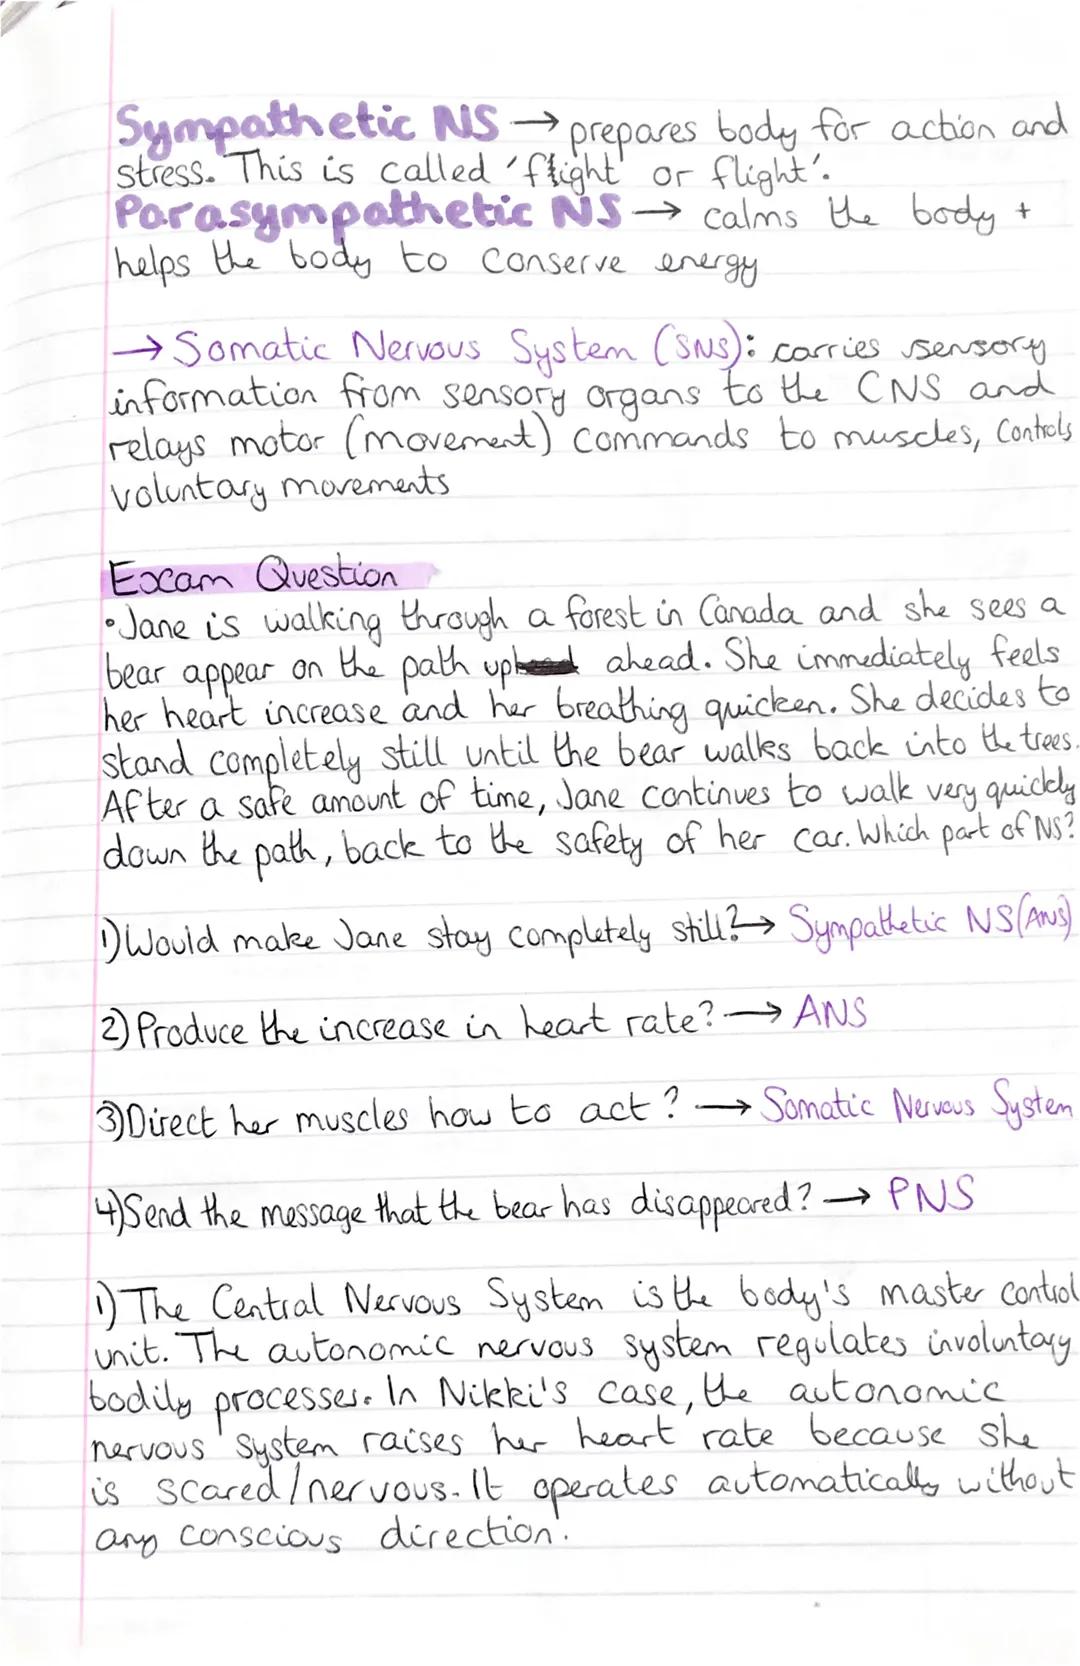 Sympathetic NS → prepares body for action and
stress. This is called 'flight or flight'.
Parasympathetic NS → calms the body +
helps the body to conserve energy
→ Somatic Nervous System (SNS): carries sensory
information from sensory organs to the CNS and
relays motor (movement) commands to muscles, Controls
voluntary movements
Exam Question
•Jane is walking through a forest in Canada and she sees a
bear appear on the path up ahead. She immediately feels
her heart increase and her breathing quicken. She decides to
stand completely still until the bear walks back into the trees.
After a safe amount of time, Jane continues to walk very quickly
down the path, back to the safety of her car. Which part of NS?
1) Would make Jane stay completely still? → Sympathetic NS (ANS)
2) Produce the increase in heart rate? → ANS
3) Direct her muscles how to act? → Somatic Nervous System
4) Send the message that the bear has disappeared? → PNS
1) The Central Nervous System is the body's master control
unit. The autonomic nervous system regulates involuntary
bodily processes. In Nikki's case, the autonomic
nervous system raises her heart rate because she
is scared/nervous. It operates automatically without
any conscious direction.